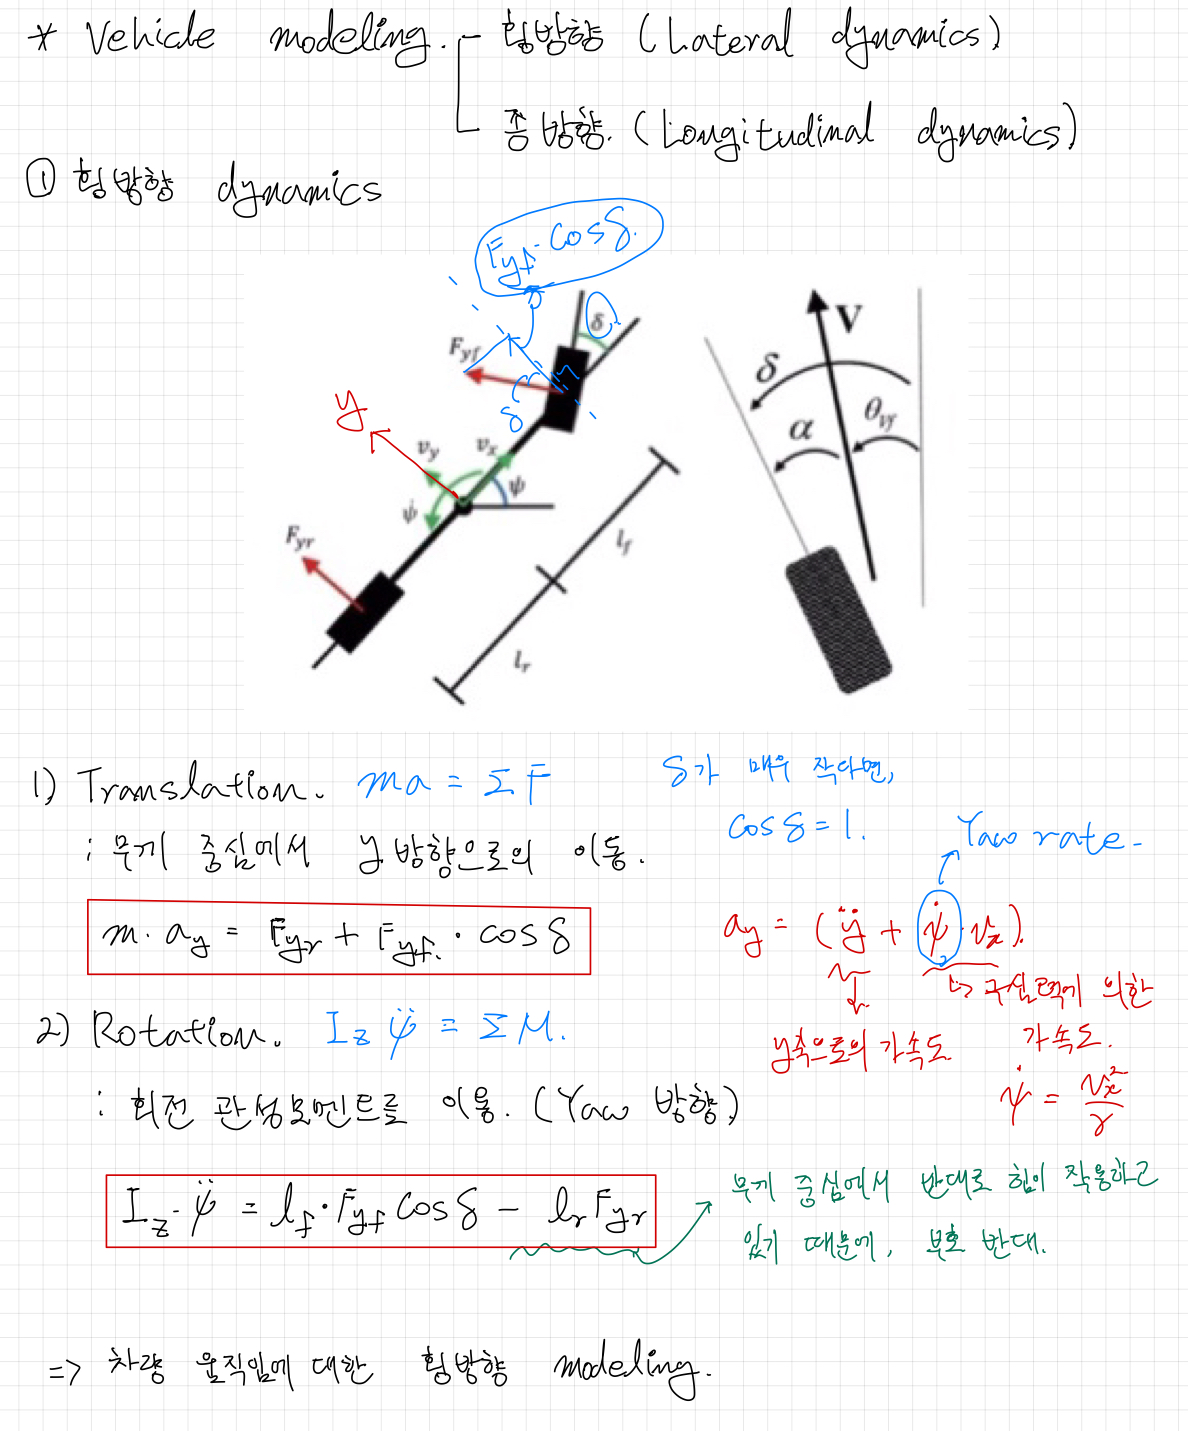 * Vehicle modeling. 횡방향 (Lateral dynamics)
종방향. (Longitudinal dynamics)
① 횡방향 dynamics
Fyf·cosδ.
δ
Fyf
δ
y
v_y
v_x
ψ
ψ̇
Fyr
l_f
l_r
V
δ
θ_vf
α
1) Translation. ma = ΣF
δ가 매우 작다면,
cosδ = 1.
: 무게 중심에서 y 방향으로의 이동.
Yaw rate.
m·ay = Fyr + Fyf·cosδ
ay = (ÿ + ψ̇·vx).
↳ 구심력에 의한
가속도.
y축으로의 가속도
ψ̇ = vx²/r
2) Rotation. Iz ψ̈ = ΣM.
: 회전 관성모멘트로 이용. (Yaw 방향)
Iz·ψ̈ = lf·Fyf cosδ − lr Fyr
무게 중심에서 반대로 힘이 작용하고
있기 때문에, 부호 반대.
=> 차량 움직임에 대한 횡방향 modeling.